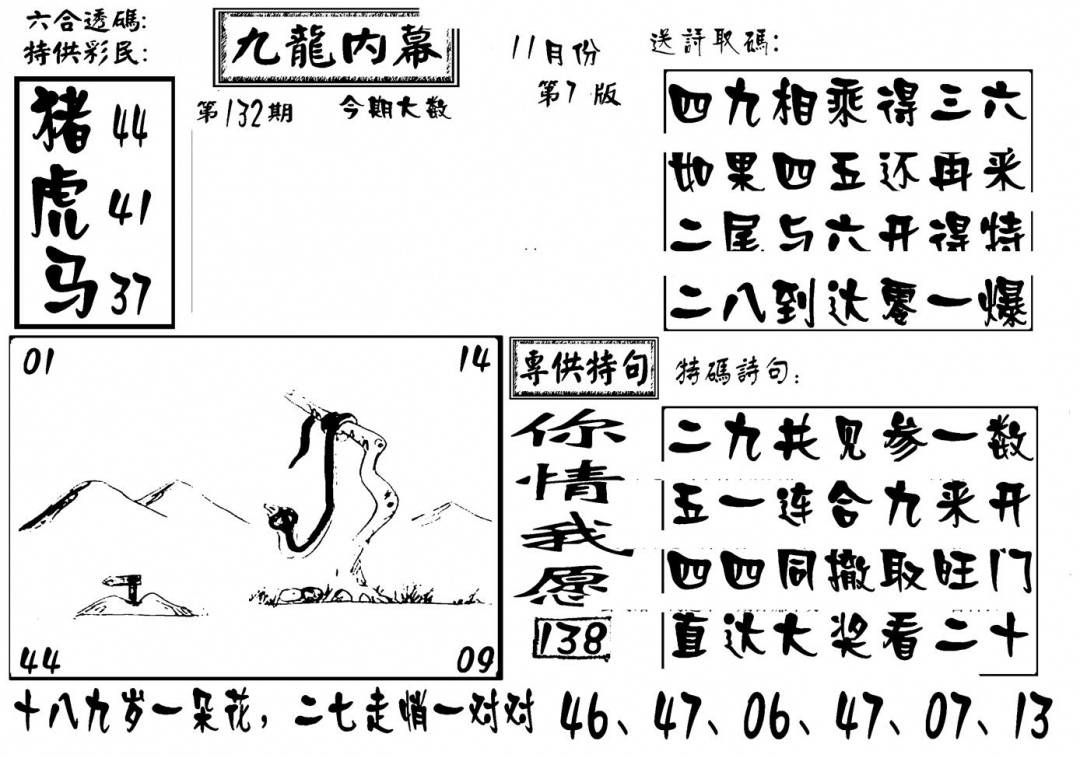 六合透碼:
特供彩民:
猪 44
虎 41
马 37
九龍内幕
第132期 今期大数
11月份
第7版
送詩取碼:
四九相乘得三六
如果四五还再来
二尾与六开得特
二八到达零一爆
01 14
44 09
専供特句
你情我愿
138
特碼詩句:
二九共见参一数
五一连合九来开
四四同撤取旺门
直达大奖看二十
十八九岁一朵花, 二七走悄一对对 46、47、06、47、07、13